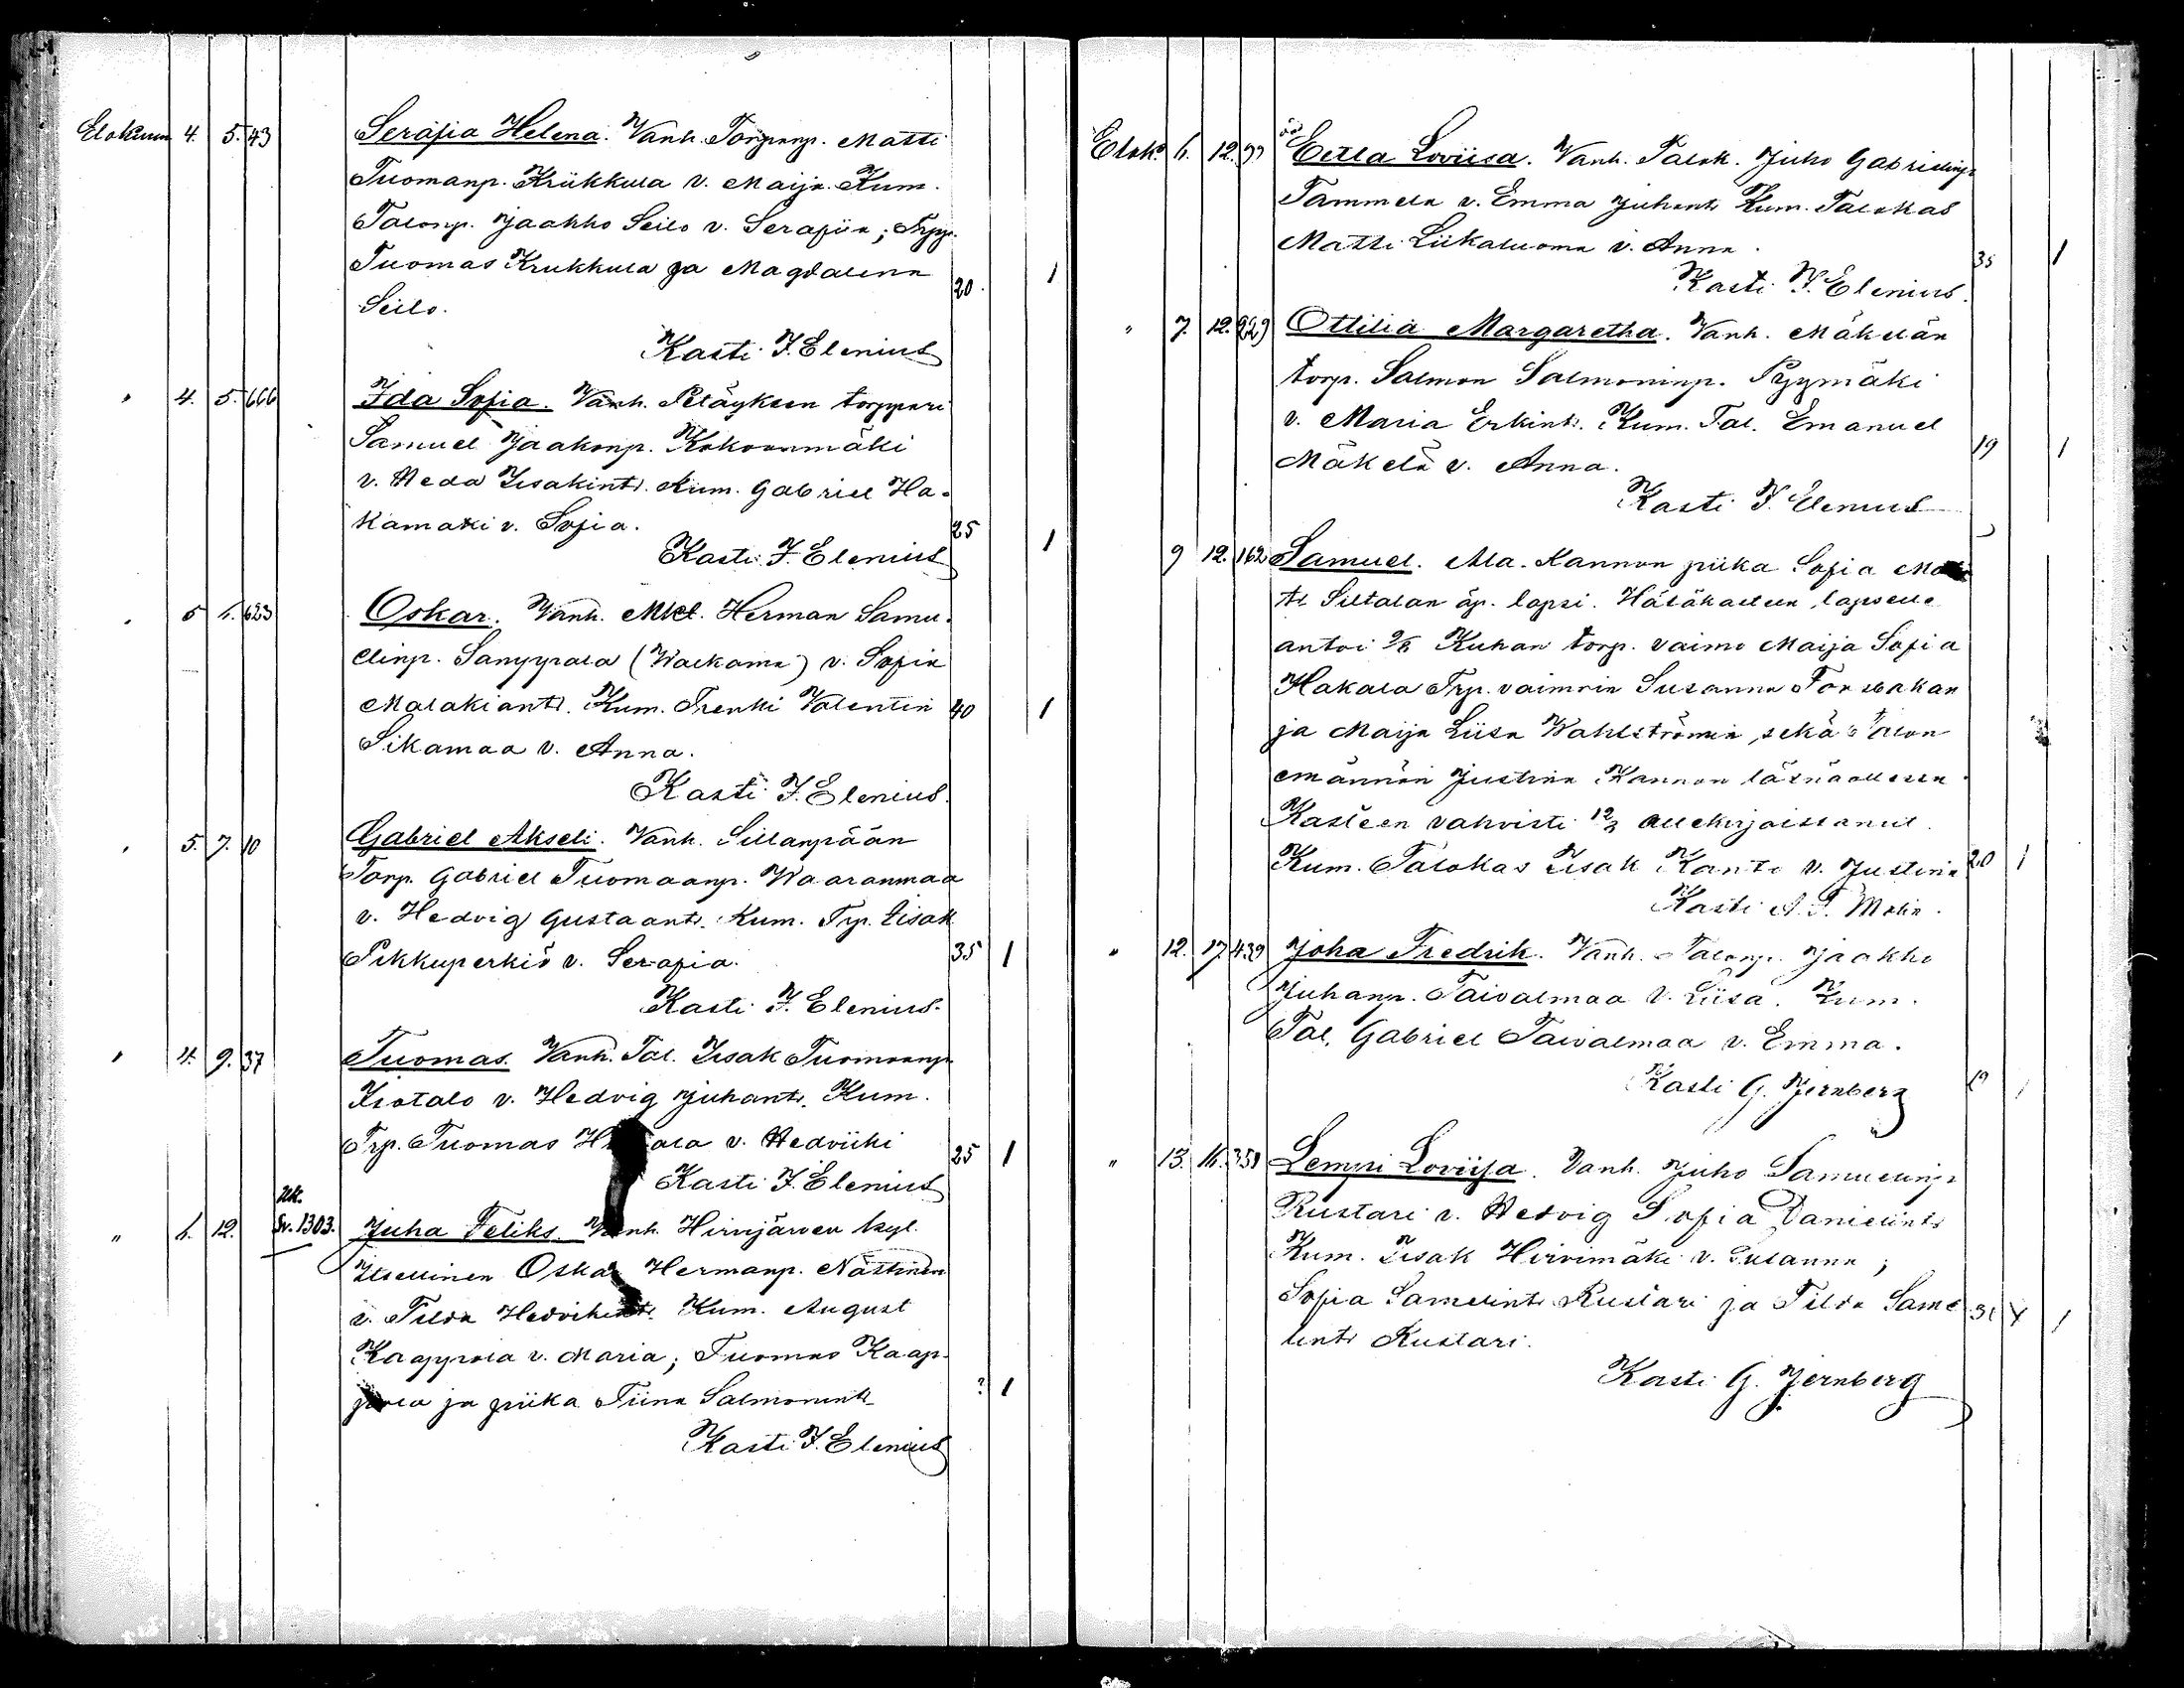 Elokuun 4. 5. 43 Serafia Helena. Vanh. Torpanp. Matti
Tuomanp. Krükkula v. Maija. Kum.
Talonp. Jaakko Seilo v. Serafiia; Trp.
Tuomas Krukkula ja Magdalena 20. 1
Seilo.
Kasti J. Elenius
" 4. 5. 666 Ida Sofia. Vanh. Petäyksen torppari
Samuel Jaakonp. Kokoonmäki
v. Heda Iisakint. Kum. Gabriel Ha-
kamäki v. Sofia. 25 1
Kasti J. Elenius
" 5 6. 623 Oskar. Vanh. Mkel. Herman Samu-
elinp. Sanyppala (Walkama) v. Sofia
Malakiant. Kum. Trenki Valentin 40 1
Sikamaa v. Anna.
Kasti J. Elenius.
" 5. 7. 10 Gabriel Akseli. Vanh. Sillanpään
Torp. Gabriel Tuomaanp. Waaranmaa
v. Hedvig Gustaant. Kum. Trp. Iisak
Pikkuperkiö v. Serafia. 35 1
Kasti J. Elenius.
" 4. 9. 37 Tuomas. Vanh. Tal. Iisak Tuomaanp.
Isotalo v. Hedvig Juhant. Kum.
Trp. Tuomas v. Hedviiki 25 1
Kasti J. Elenius
" 6. 12. Uk. Sv. 1303. Juha Feliks. Vanh. Hirvijärven kyl.
Itsellinen Oskar Hermanp. Nästinen
v. Tilda Hedvikint. Kum. August
Kaappola v. Maria; Tuomas Kaap-
pola ja piika Tiina Salmonint. ? 1
Kasti J. Elenius
Elok. 6. 12. 99 Eetla Loviisa. Vanh. Talok. Juho Gabrielinp.
Tammela v. Emma Juhant. Kum. Talokas
Matti Liikaluoma v. Anna. 35 1
Kasti J. Elenius.
" 7. 12. 229 Ottilia Margaretha. Vanh. Mäkelän
torp. Salmon Salmoninp. Pyymäki
v. Maria Erkint. Kum. Tal. Emanuel
Mäkelä v. Anna. 19 1
Kasti J. Elenius
9 12. 162 Samuel. Ala-Kannon piika Sofia
tt. Siltalan äp. lapsi. Hätäkasteen lapselle
antoi 9/8 Kuhan torp. vaimo Maija Sofia
Hakala Trp. vaimoin Susanna Torwakan
ja Maija Liisa Wahlströmin, sekä talon
emännön Justina Kannon läsnäollessa.
Kasteen vahvisti 12/8 allekirjoittanut.
Kum. Talokas Iisak Kanto v. Justina 20 1
Kasti A. F. Molin.
" 12. 17. 439 Joha Fredrik. Vanh. Talonp. Jaakko
Juhanp. Taivalmaa v. Liisa. Kum.
Tal. Gabriel Taivalmaa v. Emma.
Kasti G. Jernberg 19 1
" 13. 16. 358 Lempi Loviisa. Vanh. Juho Samuelinp.
Rustari v. Hedvig Sofia Danielint.
Kum. Iisak Hirvimäki v. Susanna;
Sofia Samelint Rustari ja Tilda Same- 31 1
lint Rustari.
Kasti G. Jernberg